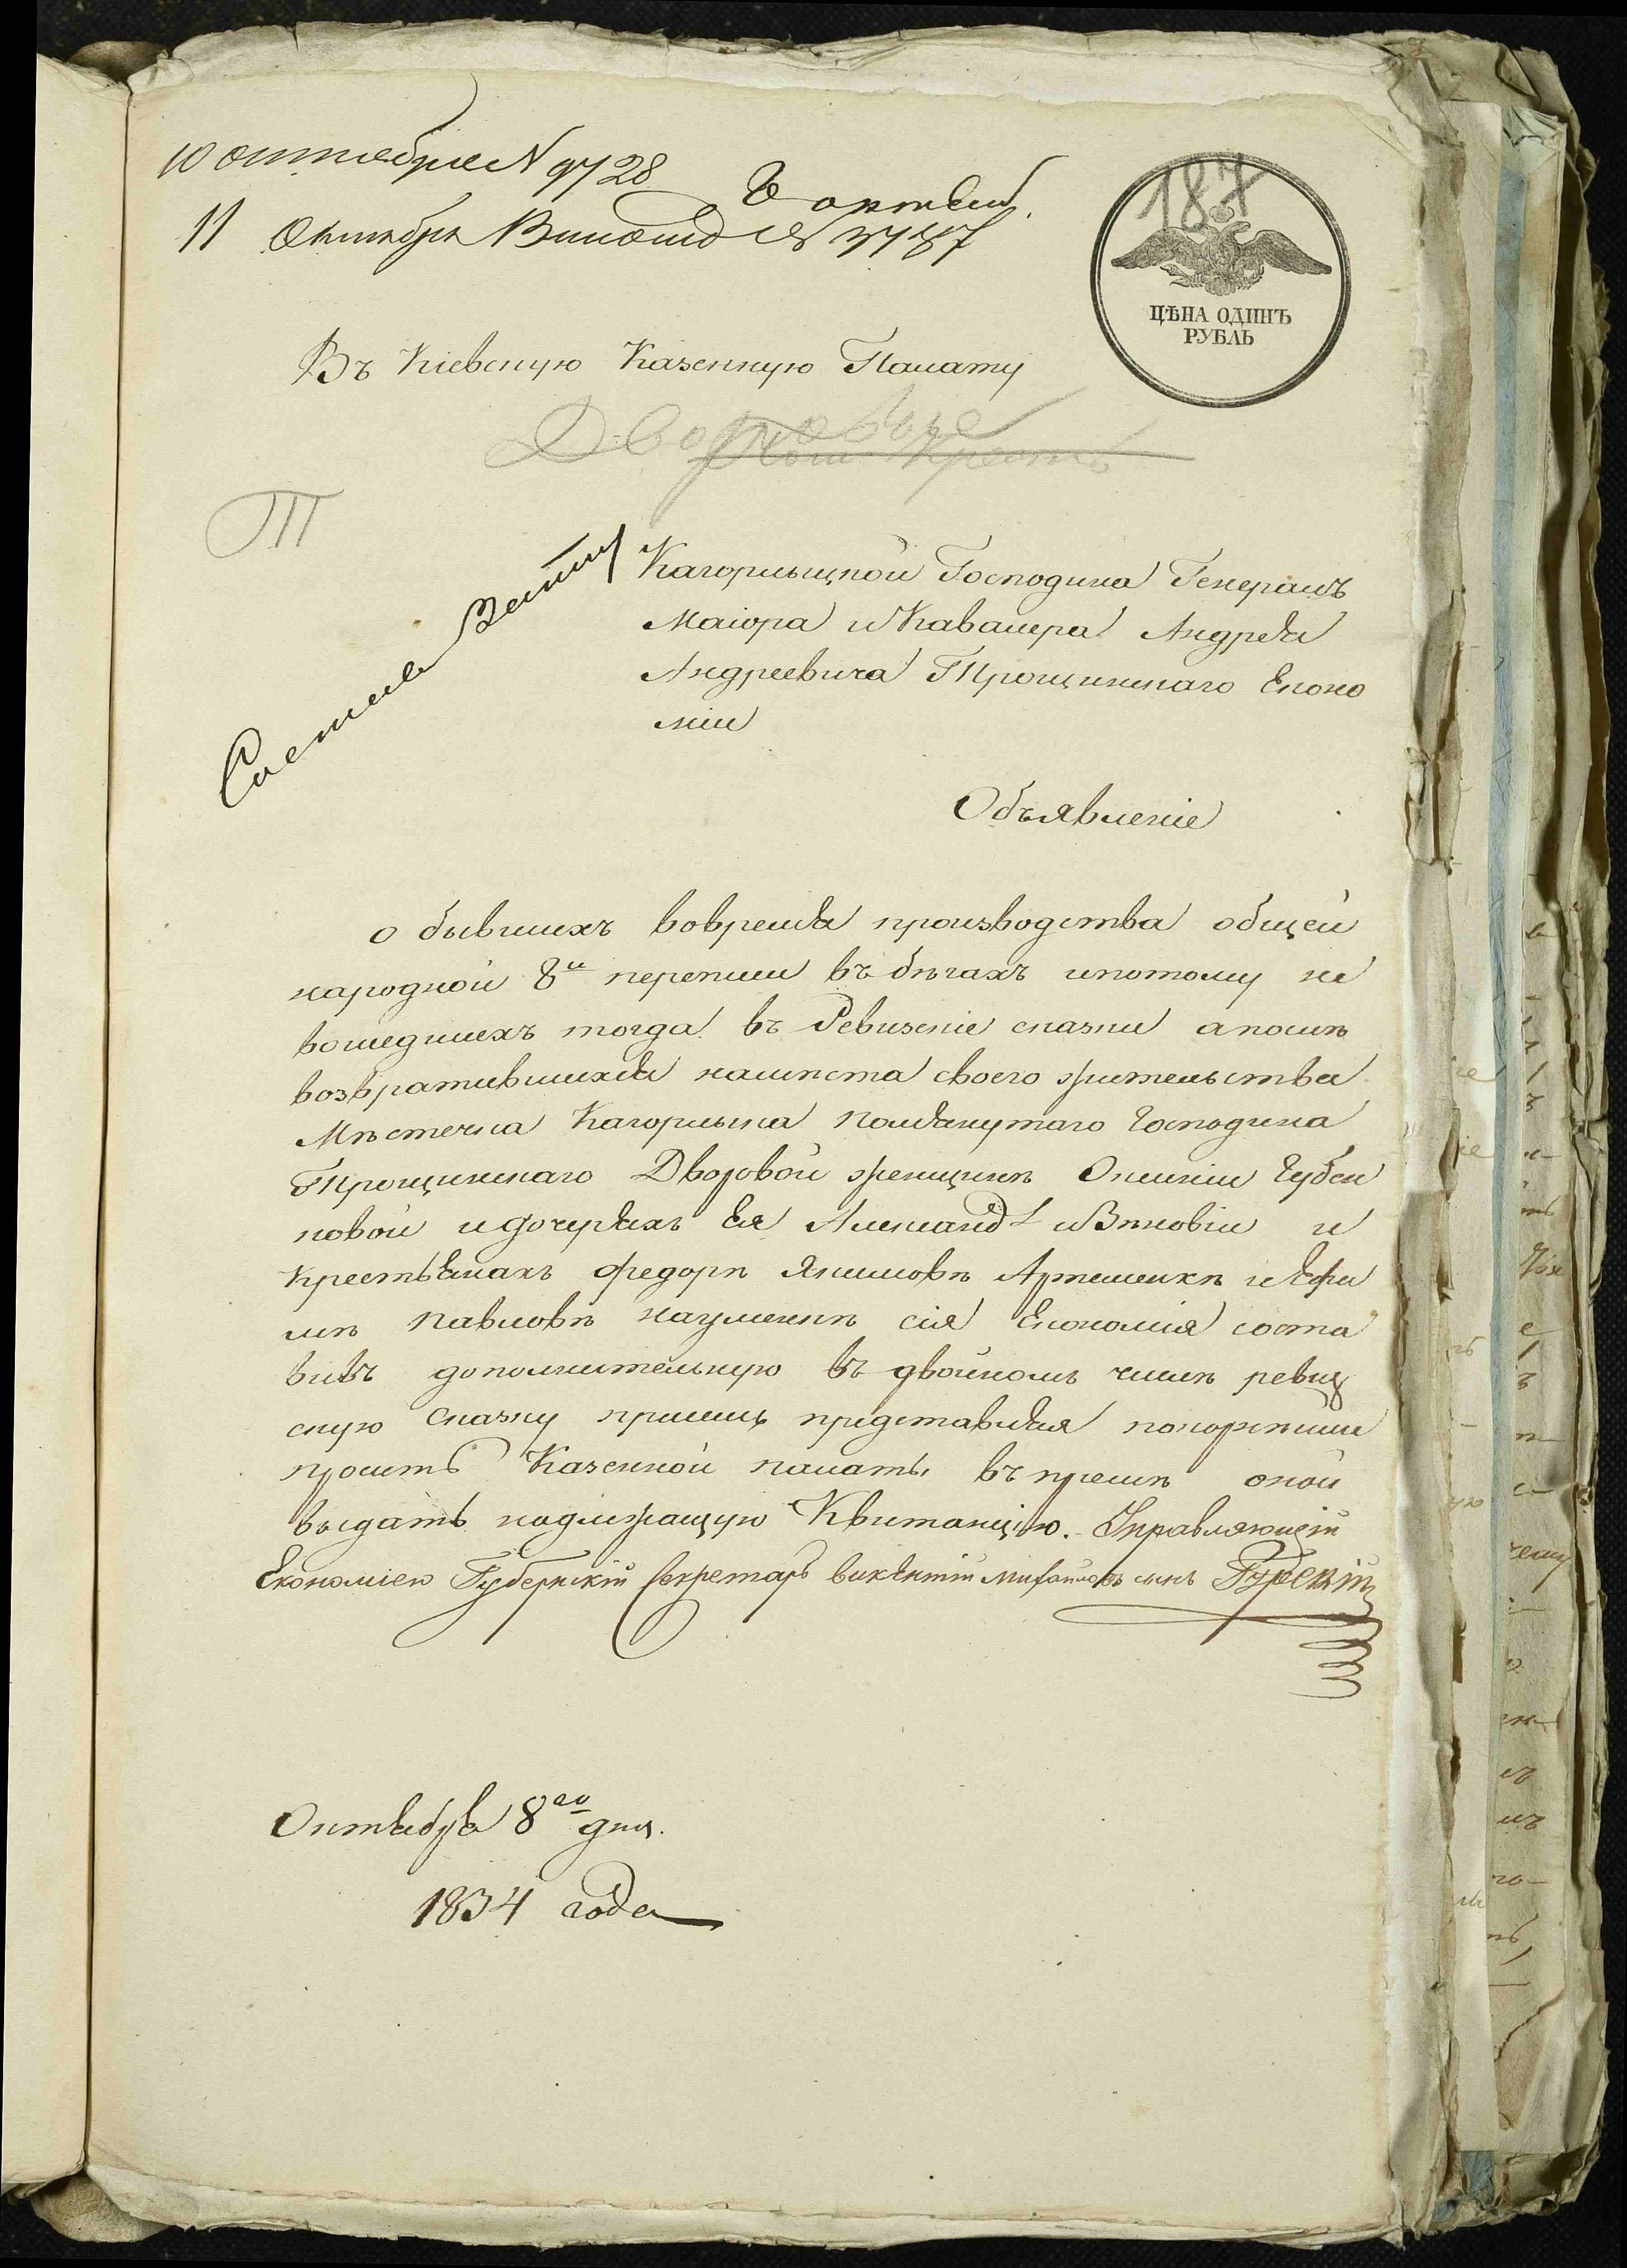 10 октября N 9728
187
11 Октября
ЦѢНА ОДИНЪ
РУБЛЬ
Въ Кіевскую Казенную Палату
Дворовые
Кагорлыцкой Господина Генералъ
Маіора и Кавалера Андрея
Андреевича Трощинскаго Еконо
міи
Объявленіе
о бывшихъ вовремя производства общей
народной 8й переписи въ бѣгахъ ипотому не
вошедшихъ тогда въ Ревизскіе сказки а послѣ
возвратившихся намѣста своего жительства
Мѣстечка Кагорлыка Помянутаго Господина
Трощинскаго Дворовой женщинѣ
новой идочеряхъ Ея и
Крестьянахъ Федорѣ Якимовѣ Артеменкѣ и Яфи
мѣ Павловѣ Науменкѣ сія Економія соста
вивъ дополнительную въ двойномъ числѣ ревиз
скую Сказку присемъ представляя покорнѣише
проситъ Казенной палаты въ пріемѣ оной
выдать надлежащую Квитанцію. Управляющій
Економіею Губернскій Секретарь викентій михайловъ сынъ Гурскій
Октября 8го дня.
1834 года